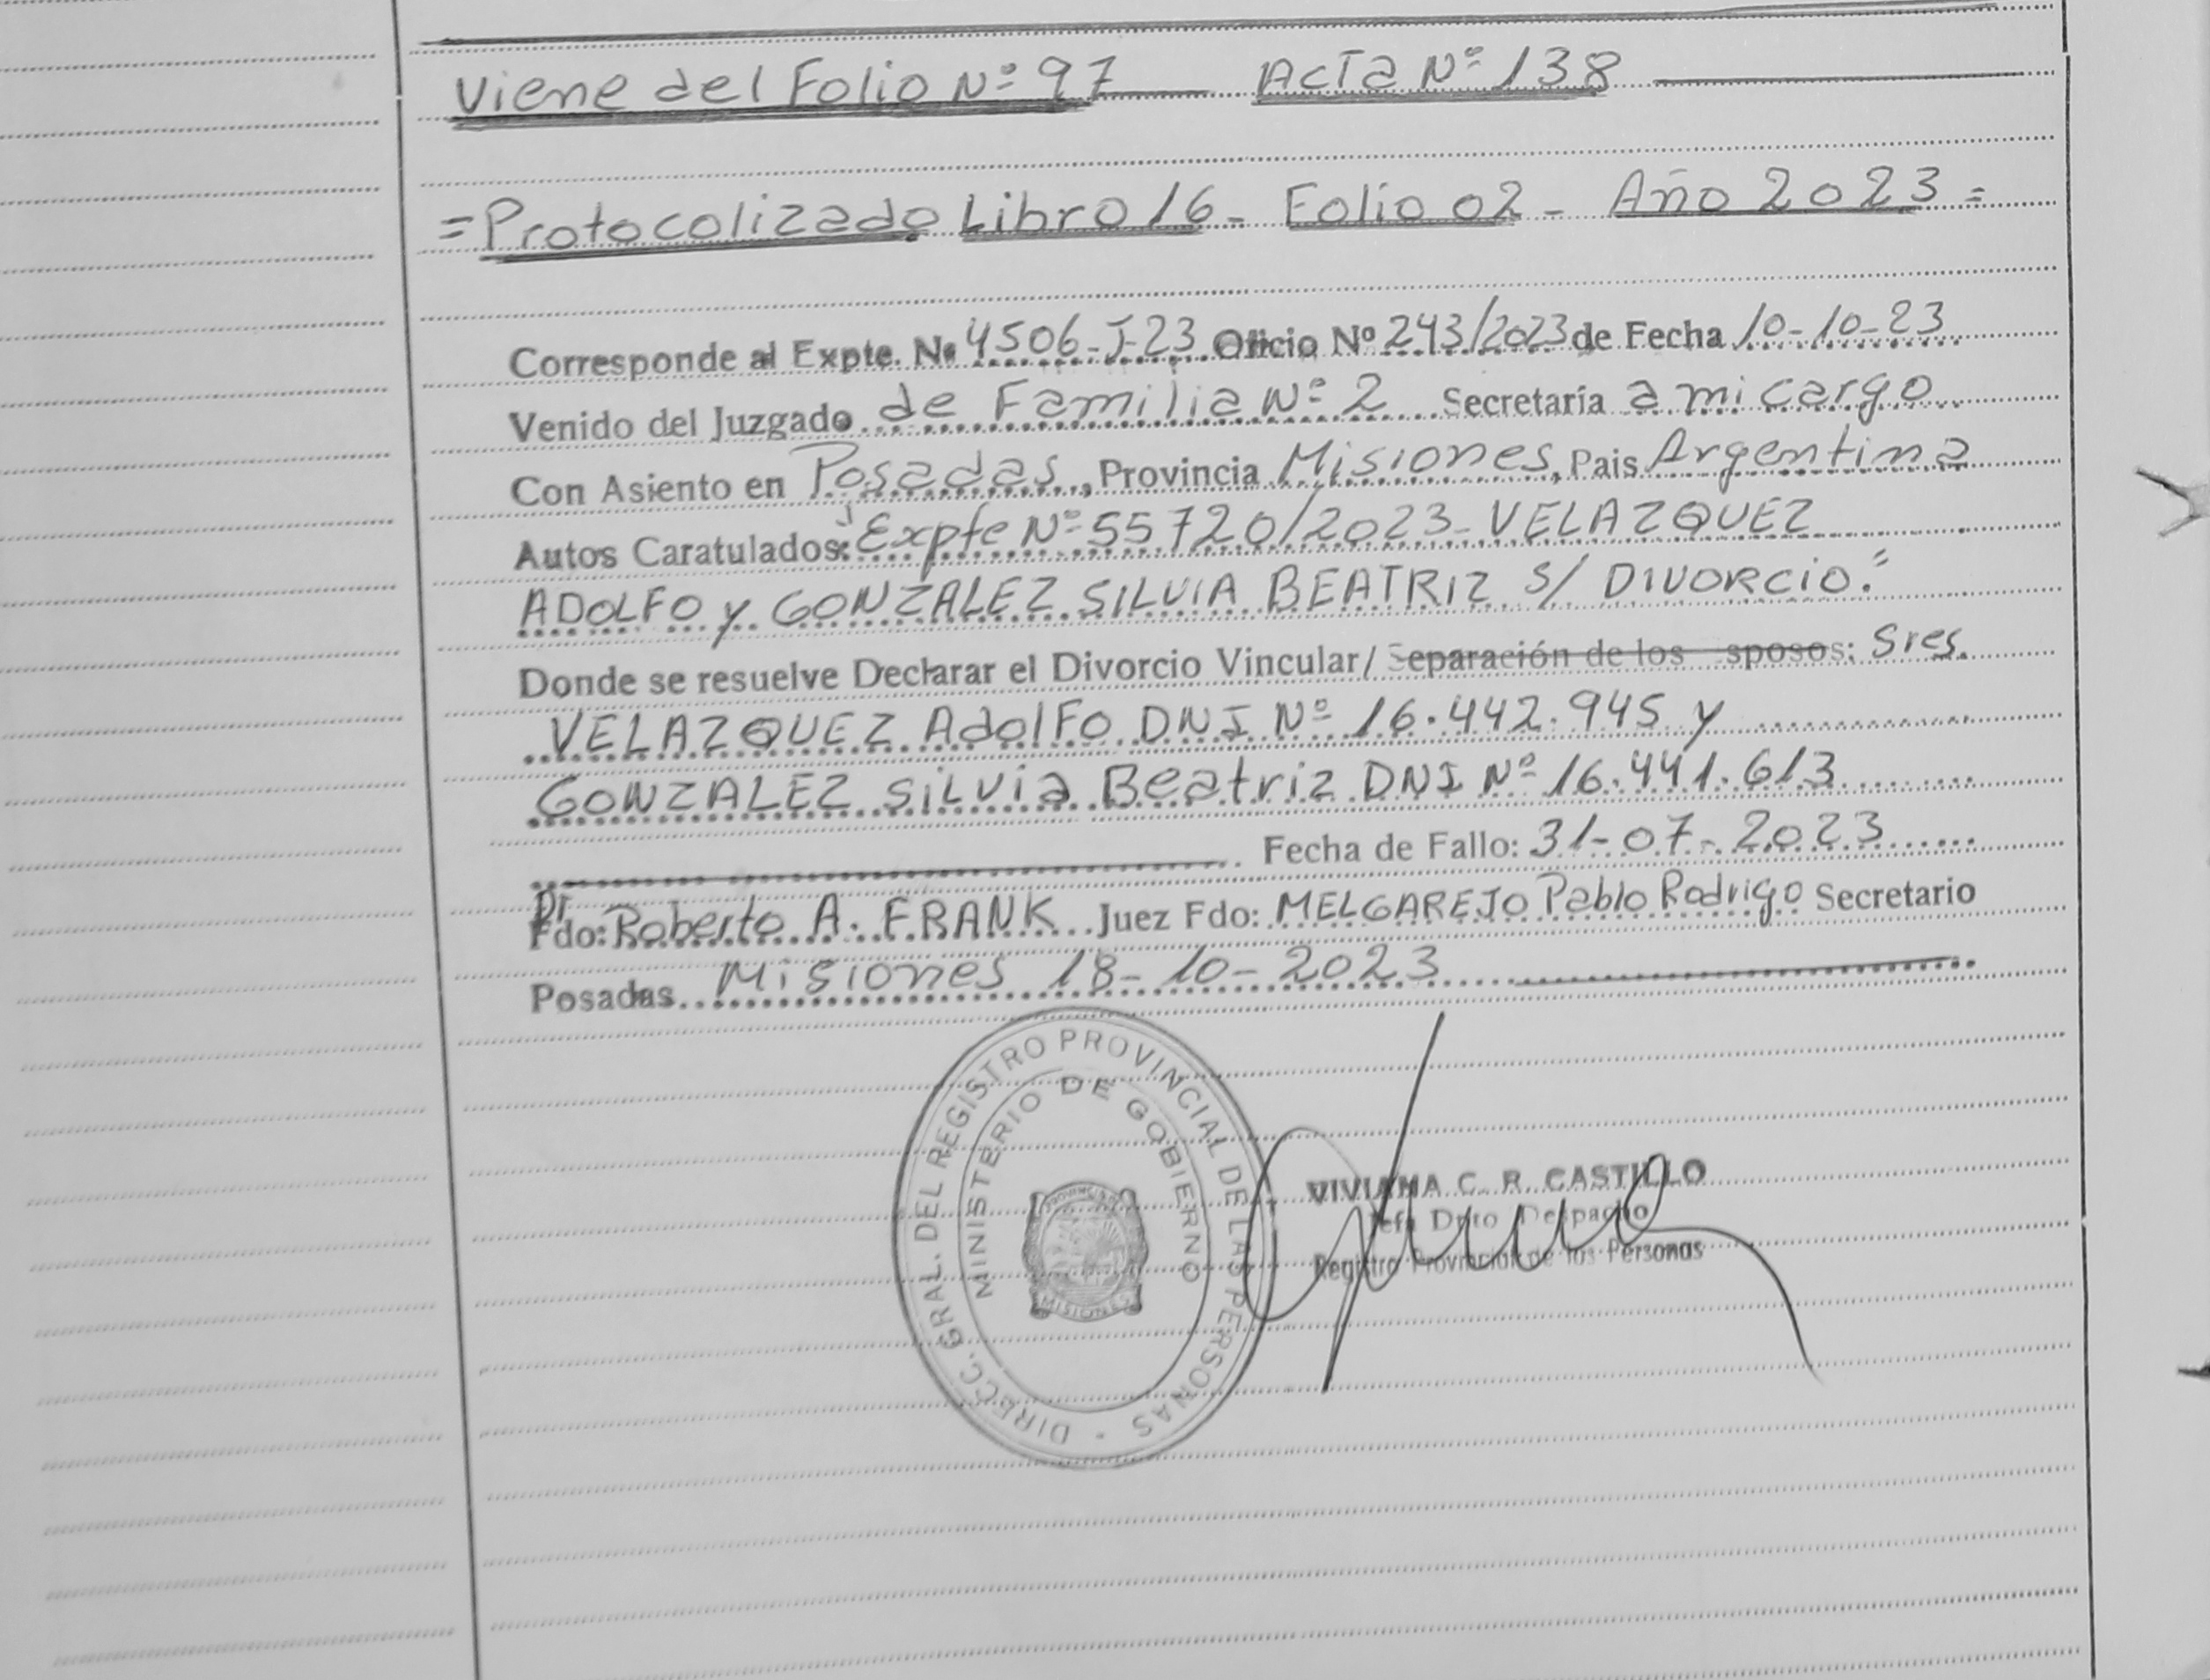 Viene del Folio Nº 97 Acta Nº 138
= Protocolizado Libro 16 - Folio 02 - Año 2023 =
Corresponde al Expte. Nº 4506-J-23 Oficio Nº 243/2023 de Fecha 10-10-23
Venido del Juzgado de Familia Nº 2 Secretaría a mi cargo
Con Asiento en Posadas, Provincia Misiones, Pais Argentina
Autos Caratulados: "Expte Nº 55720/2023 - VELAZQUEZ
ADOLFO y GONZALEZ SILVIA BEATRIZ S/ DIVORCIO."
Donde se resuelve Declarar el Divorcio Vincular/ Separación de los sposos: Sres.
VELAZQUEZ Adolfo DNI Nº 16.442.945 y
GONZALEZ SILVIA Beatriz DNI Nº 16.441.613
Fecha de Fallo: 31-07-2023
Dr
Fdo: Roberto A. FRANK Juez Fdo: MELGAREJO Pablo Rodrigo Secretario
Posadas Misiones 18-10-2023
DIRECC. GRAL. DEL REGISTRO PROVINCIAL DE LAS PERSONAS
MINISTERIO DE GOBIERNO
PROVINCIA DE
MISIONES
VIVIANA C. R. CASTILLO
Jefa Dpto Despacho
Registro Provincial de las Personas